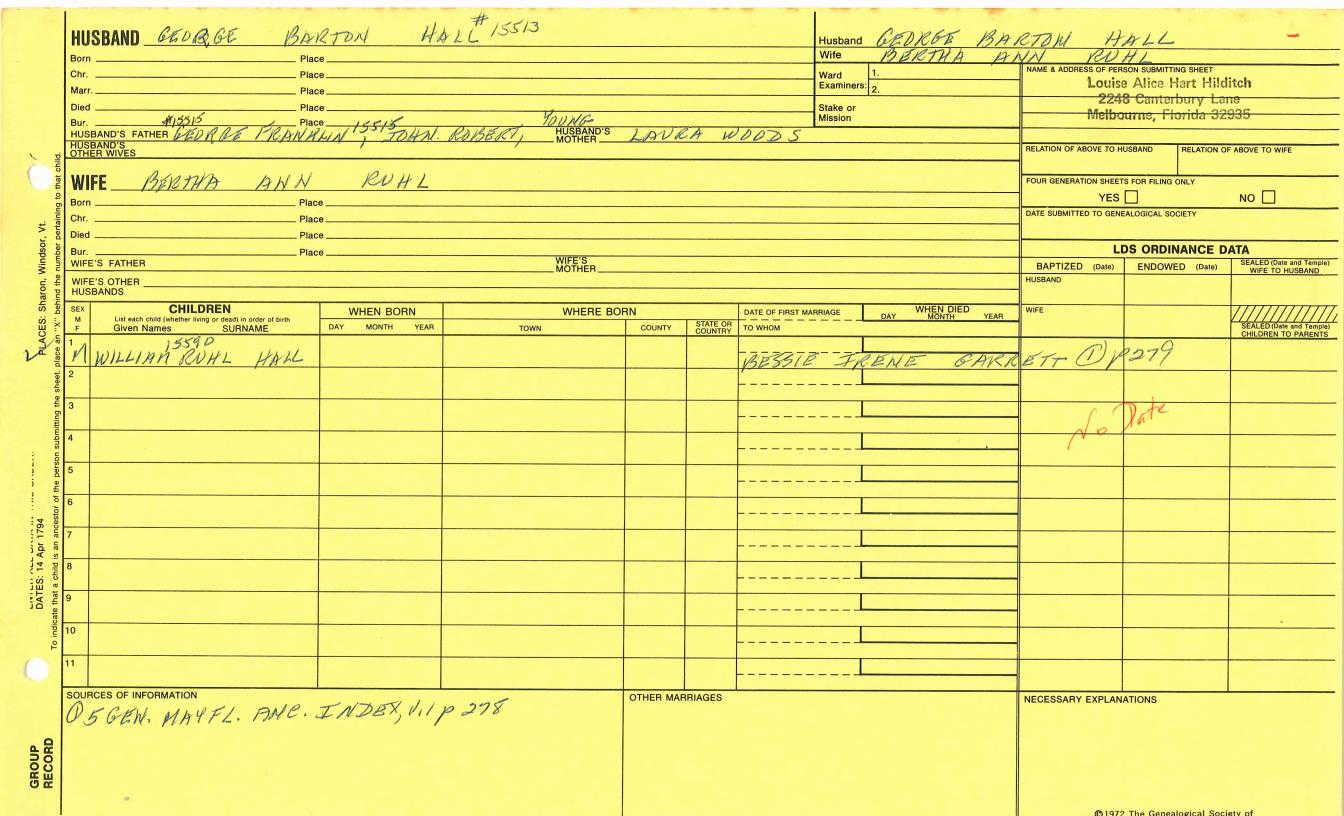 HUSBAND GEORGE BARTON HALL #15513
Born Place
Chr. Place
Marr. Place
Died Place
Bur. #15515 Place YOUNG
HUSBAND'S FATHER GEORGE FRANKLIN 15515, JOHN. ROBERT, HUSBAND'S MOTHER LAURA WOODS
HUSBAND'S OTHER WIVES
WIFE BERTHA ANN RUHL
Born Place
Chr. Place
Died Place
Bur. Place
WIFE'S FATHER WIFE'S MOTHER
WIFE'S OTHER HUSBANDS
Husband GEORGE BARTON HALL
Wife BERTHA ANN RUHL
Ward Examiners: 1. 2.
Stake or Mission
NAME & ADDRESS OF PERSON SUBMITTING SHEET
Louise Alice Hart Hilditch
2248 Canterbury Lane
Melbourne, Florida 32935
RELATION OF ABOVE TO HUSBAND RELATION OF ABOVE TO WIFE
FOUR GENERATION SHEETS FOR FILING ONLY
YES NO
DATE SUBMITTED TO GENEALOGICAL SOCIETY
LDS ORDINANCE DATA
BAPTIZED (Date) ENDOWED (Date) SEALED (Date and Temple) WIFE TO HUSBAND
HUSBAND
WIFE
SEALED (Date and Temple) CHILDREN TO PARENTS
SEX M F
CHILDREN
List each child (whether living or dead) in order of birth
Given Names SURNAME
WHEN BORN
DAY MONTH YEAR
WHERE BORN
TOWN COUNTY STATE OR COUNTRY
DATE OF FIRST MARRIAGE
TO WHOM
WHEN DIED
DAY MONTH YEAR
1 15590
M WILLIAM RUHL HALL BESSIE IRENE GARRETT ① p279
2
3
No Date
4
5
6
7
8
9
10
11
SOURCES OF INFORMATION
① 5 GEN. MAYFL. ANC. INDEX, V.1 p 278
OTHER MARRIAGES
NECESSARY EXPLANATIONS
©1972 The Genealogical Society of
PLACES: Sharon, Windsor, Vt.
DATES: 14 Apr 1794
To indicate that a child is an ancestor of the person submitting the sheet, place an "X" behind the number pertaining to that child.
GROUP RECORD